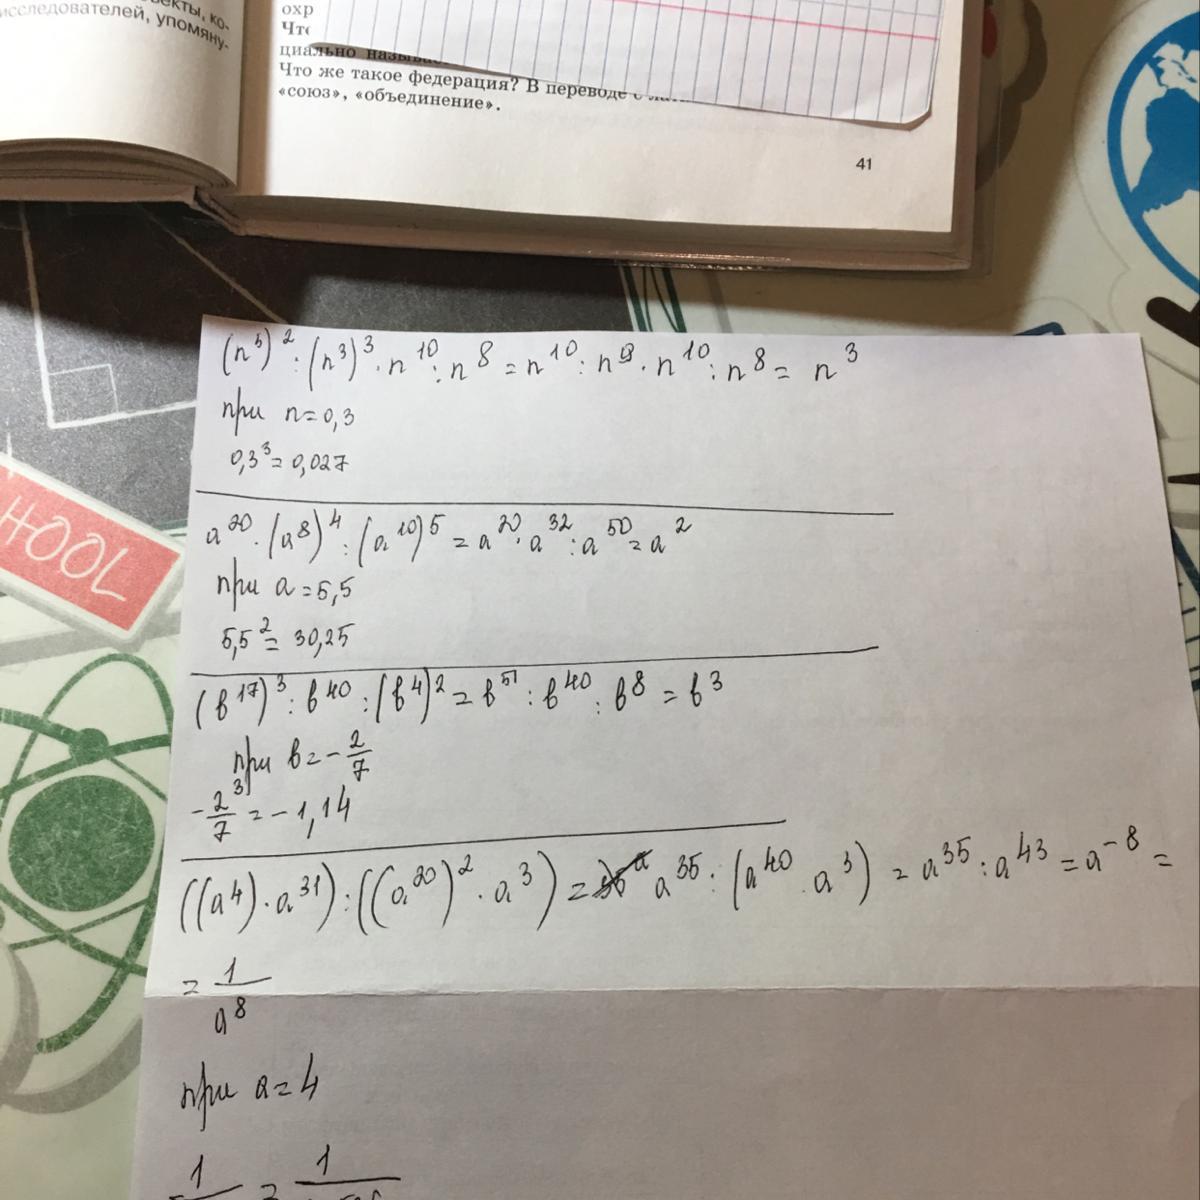 исследователей, упомяну-
охр
Что
циально
Что же такое федерация? В переводе с
«союз», «объединение».
41
HOOL
(n⁵)² : (n³)³ · n¹⁰ : n⁸ = n¹⁰ : n⁹ · n¹⁰ : n⁸ = n³
при n = 0,3
0,3³ = 0,027
a²⁰ · (a⁸)⁴ : (a¹⁰)⁵ = a²⁰ · a³² : a⁵⁰ = a²
при a = 5,5
5,5² = 30,25
(b¹⁷)³ : b⁴⁰ : (b⁴)² = b⁵¹ : b⁴⁰ : b⁸ = b³
при b = - 2/7
- 2³/7 = -1,14
((a⁴) · a³¹) : ((a²⁰)² · a³) = a³⁵ : (a⁴⁰ · a³) = a³⁵ : a⁴³ = a⁻⁸ =
= 1/a⁸
при a = 4
1 = 1